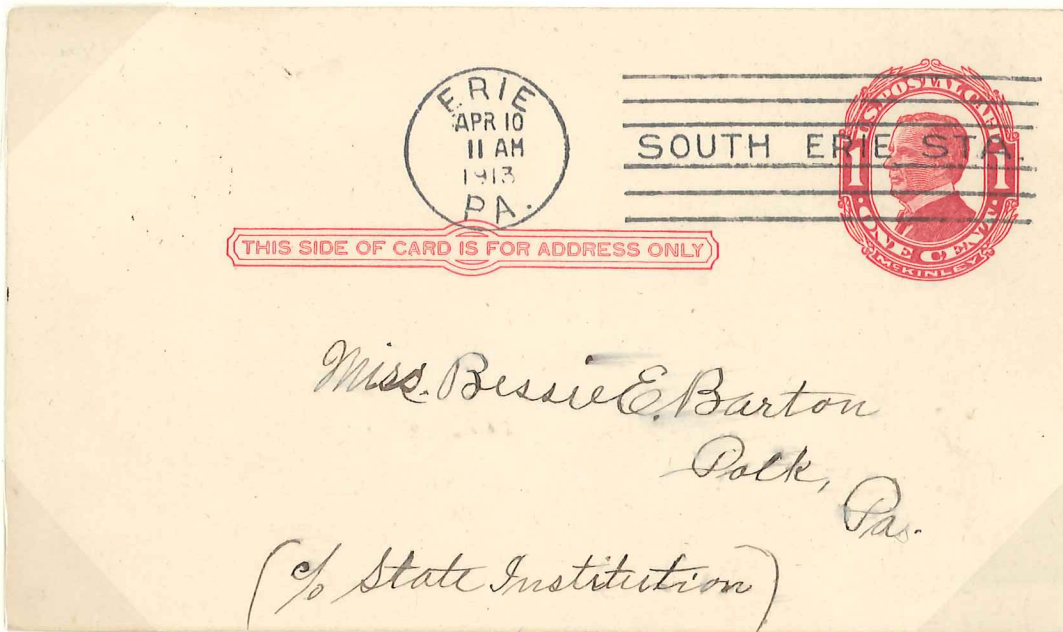 ERIE
APR 10
11 AM
1913
PA.
SOUTH ERIE STA.
U.S. POSTAL CARD
1 1
ONE CENT
McKINLEY
THIS SIDE OF CARD IS FOR ADDRESS ONLY
Miss. Bessie E. Barton
Polk,
Pa.
(c/o State Institution)